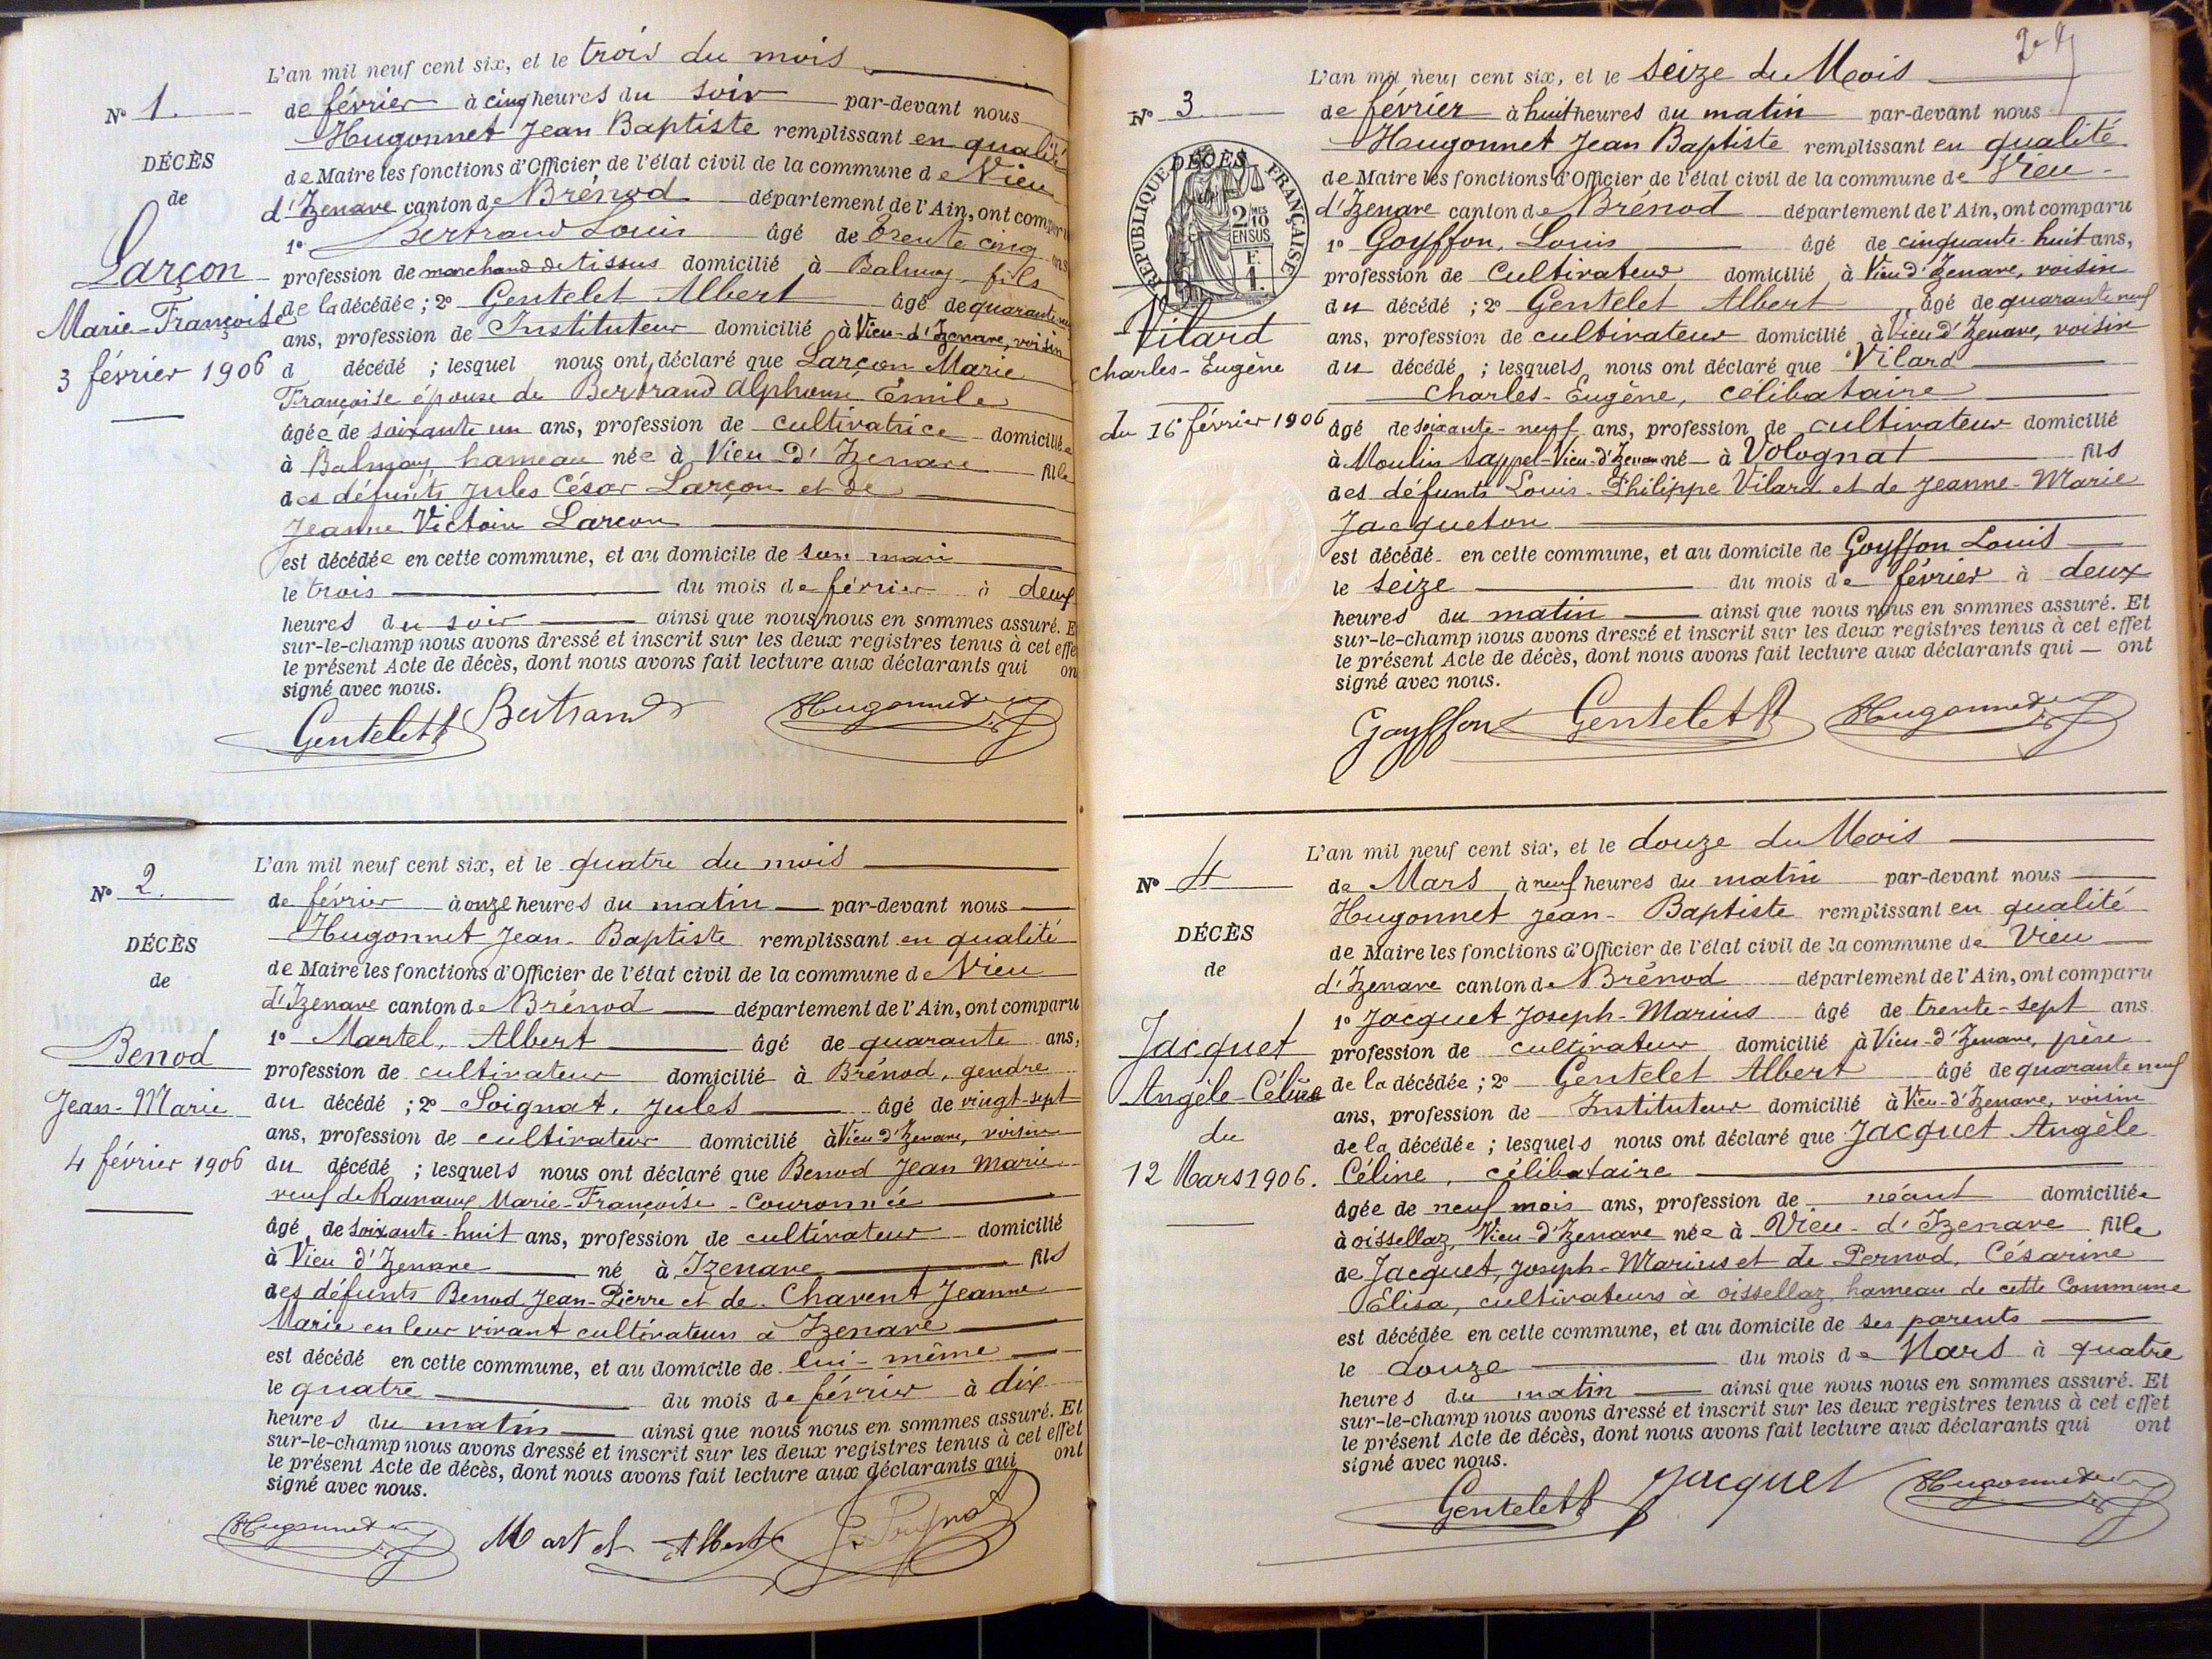 N° 1.
DÉCÈS
de
Larçon
Marie-Françoise
3 février 1906
L'an mil neuf cent six, et le trois du mois
de février à cinq heures du soir par-devant nous
Hugonnet Jean Baptiste remplissant en qualité
de Maire les fonctions d'Officier de l'état civil de la commune de Vieu
d'Izenave canton de Brénod département de l'Ain, ont comparu
1° Bertrand Louis âgé de Trente cinq ans
profession de marchand de tissus domicilié à Balmay, fils
de la décédée ; 2° Gentelet Albert âgé de quarante neuf
ans, profession de Instituteur domicilié à Vieu-d'Izenave, voisin
d décédé ; lesquel nous ont déclaré que Larçon Marie
Françoise épouse de Bertrand Alphonse Émile
âgée de soixante un ans, profession de cultivatrice domiciliée
à Balmay, hameau née à Vieu d'Izenave fille
des défunts Jules César Larçon et de
Jeanne Victoire Larcon
est décédée en cette commune, et au domicile de son mari
le trois du mois de février à deux
heures du soir ainsi que nous nous en sommes assuré. E
sur-le-champ nous avons dressé et inscrit sur les deux registres tenus à cet effe
le présent Acte de décès, dont nous avons fait lecture aux déclarants qui on
signé avec nous.
Gentelet Bertrand Hugonnet
N° 2.
DÉCÈS
de
Benod
Jean-Marie
4 février 1906
L'an mil neuf cent six, et le quatre du mois
de février à onze heures du matin par-devant nous
Hugonnet Jean-Baptiste remplissant en qualité
de Maire les fonctions d'Officier de l'état civil de la commune de Vieu
d'Izenave canton de Brénod département de l'Ain, ont comparu
1° Martel, Albert âgé de quarante ans,
profession de cultivateur domicilié à Brénod, gendre
du décédé ; 2° Soignat, Jules âgé de vingt-sept
ans, profession de cultivateur domicilié à Vieu d'Izenave, voisin
du décédé ; lesquels nous ont déclaré que Benod Jean Marie
veuf de Ramaux Marie-Françoise-Couronnée
âgé de soixante-huit ans, profession de cultivateur domicilié
à Vieu d'Izenave né à Izenave fils
des défunts Benod Jean-Pierre et de Chavent Jeanne
Marie en leur vivant cultivateurs à Izenave
est décédé en cette commune, et au domicile de lui-même
le quatre du mois de février à dix
heures du matin ainsi que nous nous en sommes assuré. Et
sur-le-champ nous avons dressé et inscrit sur les deux registres tenus à cet effet
le présent Acte de décès, dont nous avons fait lecture aux déclarants qui ont
signé avec nous.
Hugonnet Martel Albert J. Soignat
N° 3
RÉPUBLIQUE FRANÇAISE
DÉCÈS
2/10 EN SUS
F. 1.
Vilard
Charles-Eugène
du 16 février 1906
L'an mil neuf cent six, et le seize du Mois
de février à huit heures du matin par-devant nous
Hugonnet Jean Baptiste remplissant en qualité
de Maire les fonctions d'Officier de l'état civil de la commune de Vieu-
d'Izenave canton de Brénod département de l'Ain, ont comparu
1° Goyffon, Louis âgé de cinquante-huit ans,
profession de Cultivateur domicilié à Vieu d'Izenave, voisin
du décédé ; 2° Gentelet Albert âgé de quarante neuf
ans, profession de cultivateur domicilié à Vieu d'Izenave, voisin
du décédé ; lesquels nous ont déclaré que Vilard
Charles-Eugène, célibataire
âgé de soixante-neuf ans, profession de cultivateur domicilié
à Moulin Sappel-Vieu-d'Izenave né à Volognat fils
des défunts Louis-Philippe Vilard et de Jeanne-Marie
Jacqueton
est décédé en cette commune, et au domicile de Goyffon Louis
le seize du mois de février à deux
heures du matin ainsi que nous nous en sommes assuré. Et
sur-le-champ nous avons dressé et inscrit sur les deux registres tenus à cet effet
le présent Acte de décès, dont nous avons fait lecture aux déclarants qui ont
signé avec nous.
Goyffon Gentelet Hugonnet
N° 4
DÉCÈS
de
Jacquet
Angèle-Céline
du
12 Mars 1906.
L'an mil neuf cent six, et le douze du Mois
de Mars à neuf heures du matin par-devant nous
Hugonnet Jean-Baptiste remplissant en qualité
de Maire les fonctions d'Officier de l'état civil de la commune de Vieu
d'Izenave canton de Brénod département de l'Ain, ont comparu
1° Jacquet Joseph-Marius âgé de trente-sept ans
profession de cultivateur domicilié à Vieu-d'Izenave, père
de la décédée ; 2° Gentelet Albert âgé de quarante neuf
ans, profession de Instituteur domicilié à Vieu-d'Izenave, voisin
de la décédée ; lesquels nous ont déclaré que Jacquet Angèle
Céline, célibataire
âgée de neuf mois ans, profession de néant domiciliée
à oissellaz, Vieu-d'Izenave née à Vieu-d'Izenave fille
de Jacquet, Joseph-Marius et de Pernod, Césarine
Élisa, cultivateurs à oissellaz, hameau de cette Commune
est décédée en cette commune, et au domicile de ses parents
le douze du mois de Mars à quatre
heures du matin ainsi que nous nous en sommes assuré. Et
sur-le-champ nous avons dressé et inscrit sur les deux registres tenus à cet effet
le présent Acte de décès, dont nous avons fait lecture aux déclarants qui ont
signé avec nous.
Gentelet Jacquet Hugonnet